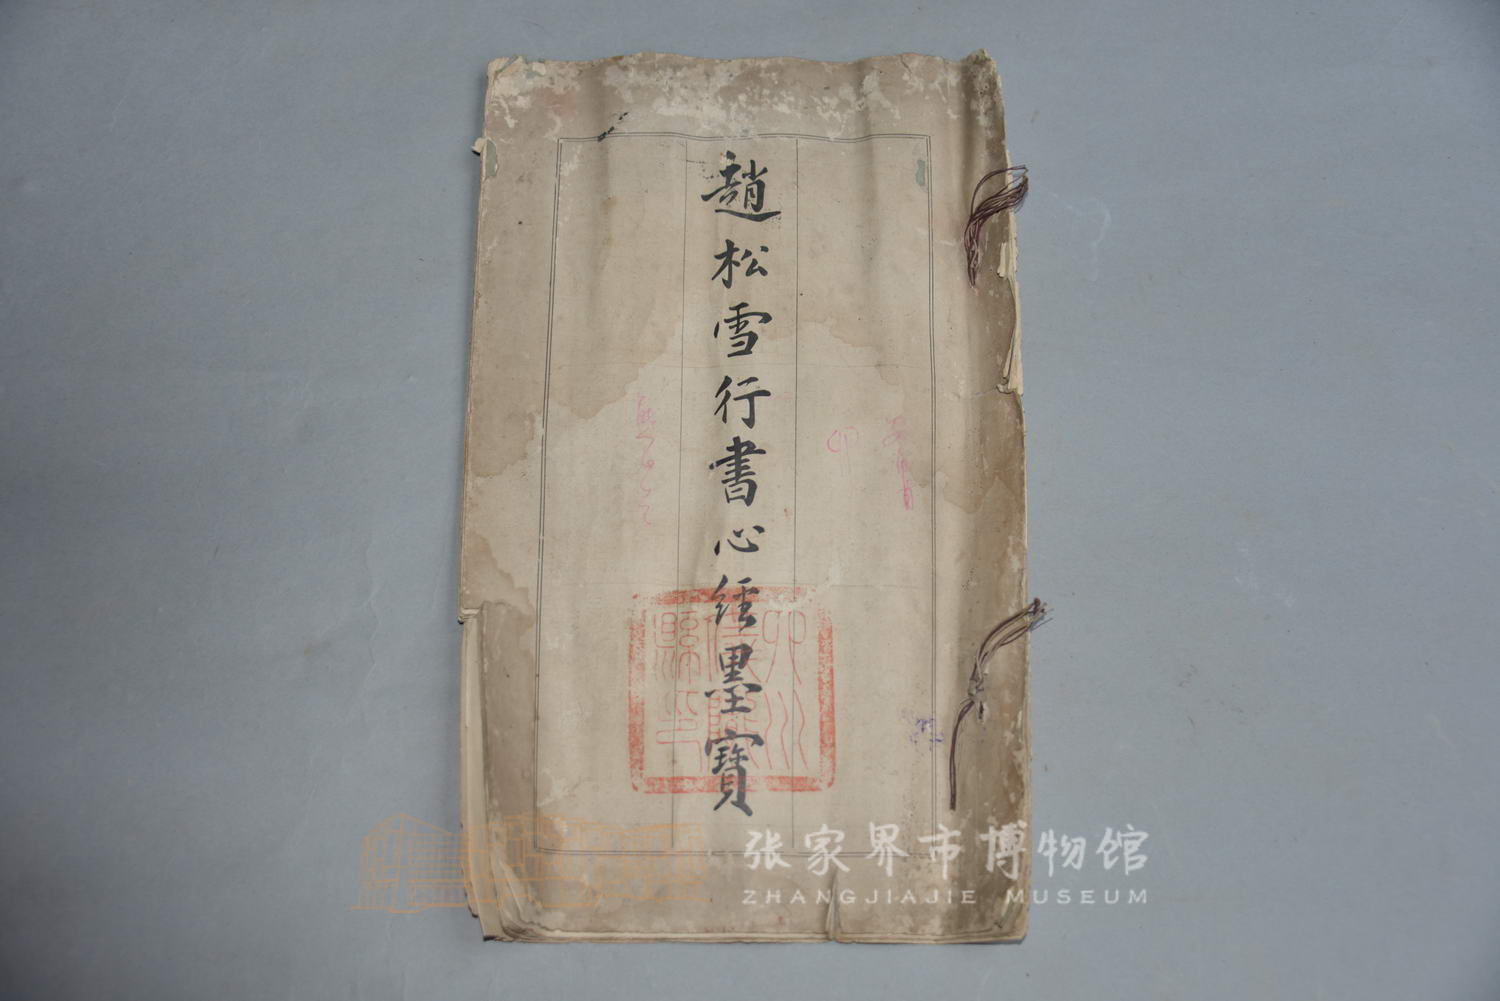 趙松雪行書心經墨寶
卯
张家界市博物馆
ZHANGJIAJIE MUSEUM